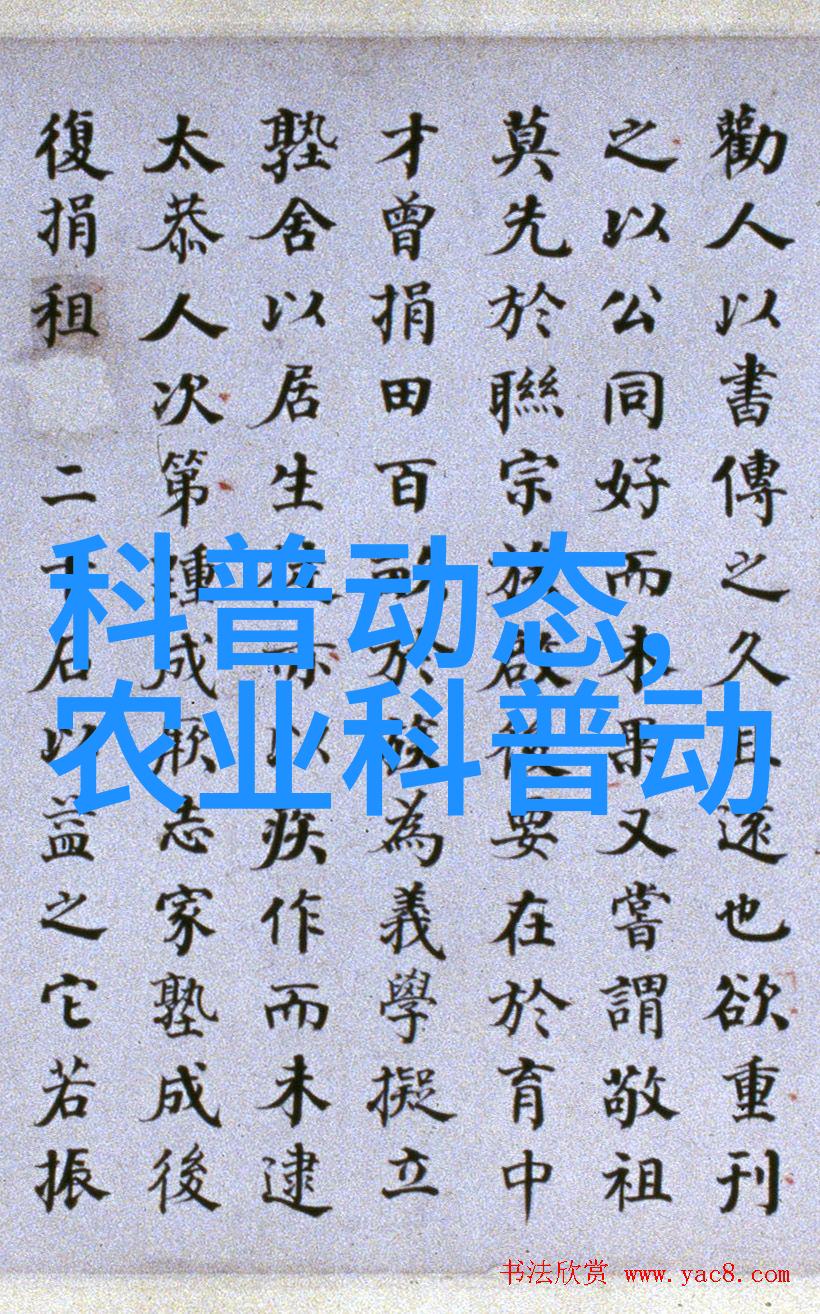 勸人以書傳之久且遠也欲重刊
之以公同好而未果又嘗謂敬祖
莫先於聯宗族啟後要在於育中
才曾捐田百畝於族為義學擬立
塾舍以居生徒亦以疾作而未逮
太恭人次第踵成厥志家塾成後
復捐租二石以益之它若振
科普动态,
农业科普动
书法欣赏 www.yac8.com